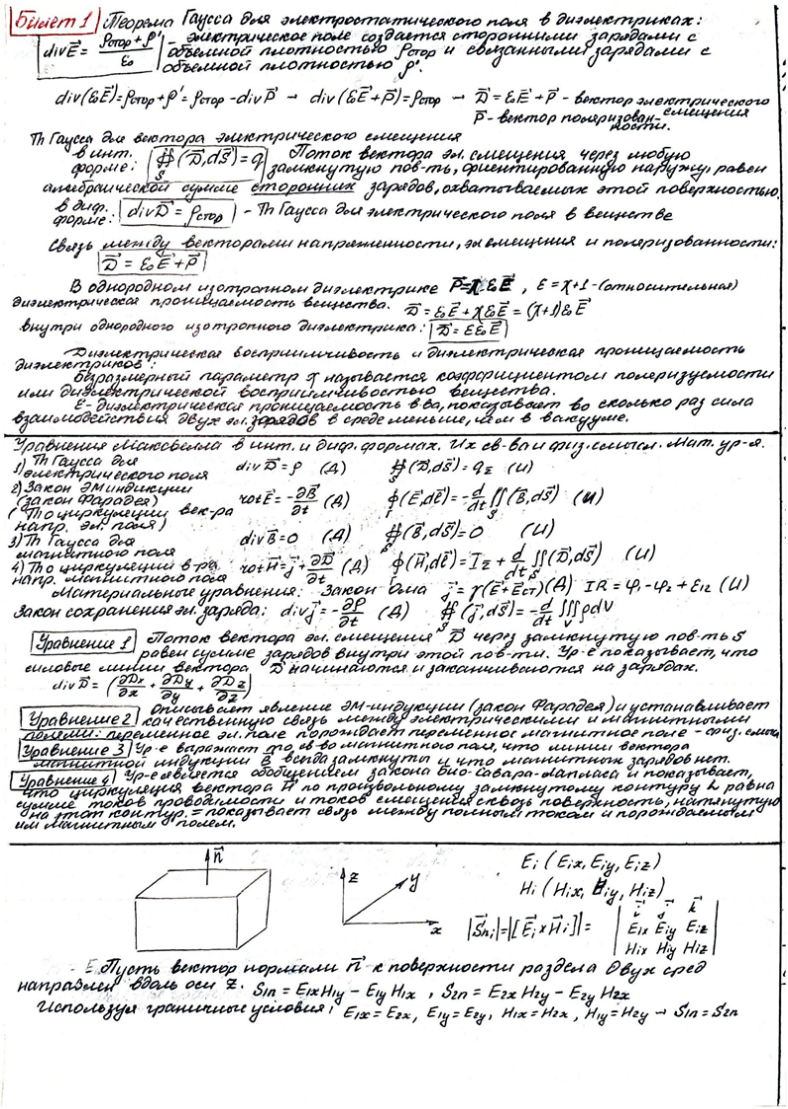 Билет 1 Теорема Гаусса для электростатического поля в диэлектриках:
div E⃗ = (ρстор + ρ')/ε₀ - электрическое поле создается сторонними зарядами с
объемной плотностью ρстор и связанными зарядами с
объемной плотностью ρ'.
div(ε₀E⃗) = ρстор + ρ' = ρстор - div P⃗ → div(ε₀E⃗ + P⃗) = ρстор → D⃗ = ε₀E⃗ + P⃗ - вектор электрического
смещения
P⃗ - вектор поляризован-
ности.
Th Гаусса для вектора электрического смещения
в инт.
форме: ∯_S (D⃗, dS⃗) = q Поток вектора эл. смещения через любую
замкнутую пов-ть, ориентированную наружу, равен
алгебраической сумме сторонних зарядов, охватываемых этой поверхностью.
в диф.
форме: div D⃗ = ρстор - Th Гаусса для электрического поля в веществе
Связь между векторами напряженности, эл смещения и поляризованности:
D⃗ = ε₀E⃗ + P⃗
В однородном изотропном диэлектрике P⃗ = χ ε₀E⃗, ε = χ+1 - (относительная)
диэлектрическая проницаемость вещества. D⃗ = ε₀E⃗ + χε₀E⃗ = (χ+1)ε₀E⃗
внутри однородного изотропного диэлектрика: D⃗ = εε₀E⃗
Диэлектрическая восприимчивость и диэлектрическая проницаемость
диэлектриков:
Безразмерный параметр χ называется коэффициентом поляризуемости
или диэлектрической восприимчивостью вещества.
ε - диэлектрическая проницаемость в ва, показывает во сколько раз сила
взаимодействия двух эл. зарядов в среде меньше, чем в вакууме.
Уравнения Максвелла в инт. и диф. формах. Их св-ва и физ. смысл. Мат. ур-я.
1) Th Гаусса для
электрического поля div D⃗ = ρ (Д) ∯_S (D⃗, dS⃗) = q_Σ (И)
2) Закон ЭМ индукции
(закон Фарадея) rot E⃗ = -∂B⃗/∂t (Д) ∮_Γ (E⃗, dℓ⃗) = -d/dt ∬_S (B⃗, dS⃗) (И)
(Th о циркуляции век-ра
напр. эл. поля)
3) Th Гаусса для
магнитного поля div B⃗ = 0 (Д) ∯_S (B⃗, dS⃗) = 0 (И)
4) Th о циркуляции в-ра
напр. магнитного поля rot H⃗ = j⃗ + ∂D⃗/∂t (Д) ∮ (H⃗, dℓ⃗) = I_Σ + d/dt ∬_S (D⃗, dS⃗) (И)
Материальные уравнения: Закон Ома j⃗ = γ(E⃗ + E⃗ст) (Д) IR = φ₁ - φ₂ + ε₁₂ (И)
Закон сохранения эл. заряда: div j⃗ = -∂ρ/∂t (Д) ∯_S (j⃗, dS⃗) = -d/dt ∭_V ρdV
Уравнение 1 Поток вектора эл. смещения D⃗ через замкнутую пов-ть S
равен сумме зарядов внутри этой пов-ти. Ур-е показывает, что
силовые линии вектора D⃗ начинаются и заканчиваются на зарядах.
div D⃗ = (∂Dx/∂x + ∂Dy/∂y + ∂Dz/∂z)
Уравнение 2 Описывает явление ЭМ-индукции (закон Фарадея) и устанавливает
качественную связь между электрическими и магнитными
полями: переменное эл. поле порождает переменное магнитное поле - физ. смысл
Уравнение 3 Ур-е выражает то св во магнитного поля, что линии вектора
магнитной индукции B⃗ всегда замкнуты и что магнитных зарядов нет.
Уравнение 4 Ур-е является обобщением закона Био-Савара-Лапласа и показывает,
что циркуляция вектора H⃗ по произвольному замкнутому контуру L равна
сумме токов проводимости и токов смещения сквозь поверхность, натянутую
на этот контур. = показывает связь между полным током и порождаемым
им магнитным полем.
n⃗ z y x
Ei (Eix, Eiy, Eiz)
Hi (Hix, Hiy, Hiz)
|S⃗ni| = |[E⃗i × H⃗i]| = | i⃗ j⃗ k⃗ |
| Eix Eiy Eiz |
| Hix Hiy Hiz |
Пусть вектор нормали n⃗ к поверхности раздела двух сред
направлен вдоль оси z. S1n = E1xH1y - E1yH1x, S2n = E2xH2y - E2yH2x
Используя граничные условия: E1x = E2x, E1y = E2y, H1x = H2x, H1y = H2y → S1n = S2n